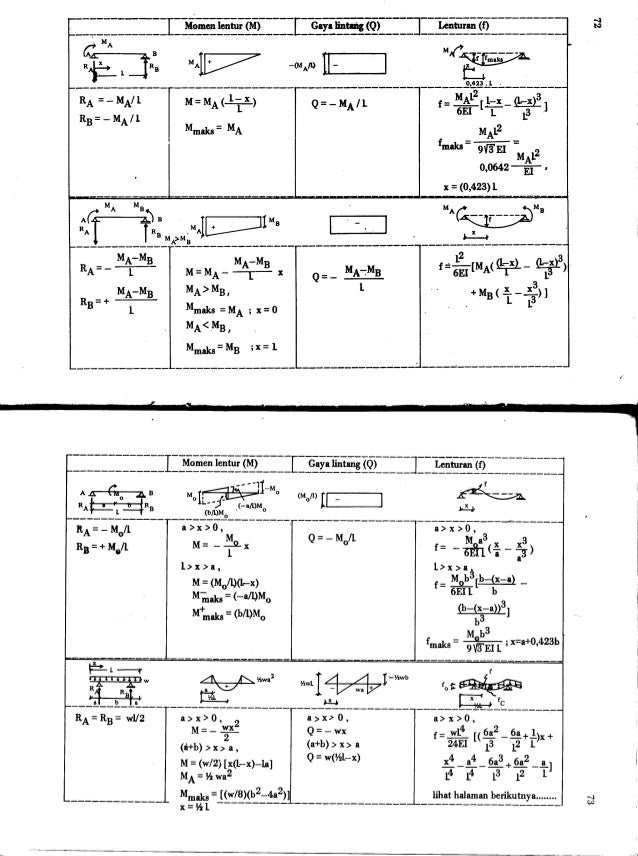 72
Momen lentur (M) Gaya lintang (Q) Lenturan (f)
M_A
A B
R_A x L R_B
M_A +
-(M_A/l) -
M_A f f maks
x
0,423 . L
R_A = – M_A/l
R_B = – M_A/l
M = M_A (l – x / l)
M maks = M_A
Q = – M_A / l
f = M_A l² / 6EI [ l–x / l – (l–x)³ / l³ ]
f maks = M_A l² / 9√3 EI =
0,0642 M_A l² / EI ,
x = (0,423) l
M_A M_B
A B
R_A R_B
M_A>M_B
M_A + M_B
-
M_A f M_B
x
R_A = – M_A–M_B / l
R_B = + M_A–M_B / l
M = M_A – M_A–M_B / l x
M_A > M_B ,
M maks = M_A ; x = 0
M_A < M_B ,
M maks = M_B ; x = l
Q = – M_A–M_B / l
f = l² / 6EI [M_A( (l–x) / l – (l–x)³ / l³ )
+ M_B ( x / l – x³ / l³ ) ]
Momen lentur (M) Gaya lintang (Q) Lenturan (f)
A M_o B
R_A a b R_B
L
M_o –M_o
(b/l)M_o (–a/l)M_o
(M_o/l) -
f
x
R_A = – M_o/l
R_B = + M_o/l
a > x > 0 ,
M = – M_o / l x
l > x > a ,
M = (M_o/l)(l–x)
M⁻ maks = (–a/l)M_o
M⁺ maks = (b/l)M_o
Q = – M_o/l
a > x > 0 ,
f = – M_o a³ / 6EI l ( x / a – x³ / a³ )
l > x > a ,
f = M_o b³ / 6EI l [ b–(x–a) / b –
(b–(x–a))³ / b³ ]
f maks = M_o b³ / 9√3 EI l ; x=a+0,423b
x L
w
R_A R_B
a b a
½wa²
a
½L
½wL – wa + –½wb
a
f_o f
x f_C
½L
R_A = R_B = wl/2
a > x > 0 ,
M = – wx² / 2
(a+b) > x > a ,
M = (w/2) [x(l–x)–la]
M_A = ½ wa²
M maks = [(w/8)(b²–4a²)]
x = ½ l
a > x > 0 ,
Q = – wx
(a+b) > x > a
Q = w(½l–x)
a > x > 0 ,
f = wl⁴ / 24EI [( 6a² / l³ – 6a / l² + 1 / l )x +
x⁴ / l⁴ – a⁴ / l⁴ – 6a³ / l³ + 6a² / l² – a / l ]
lihat halaman berikutnya........
73